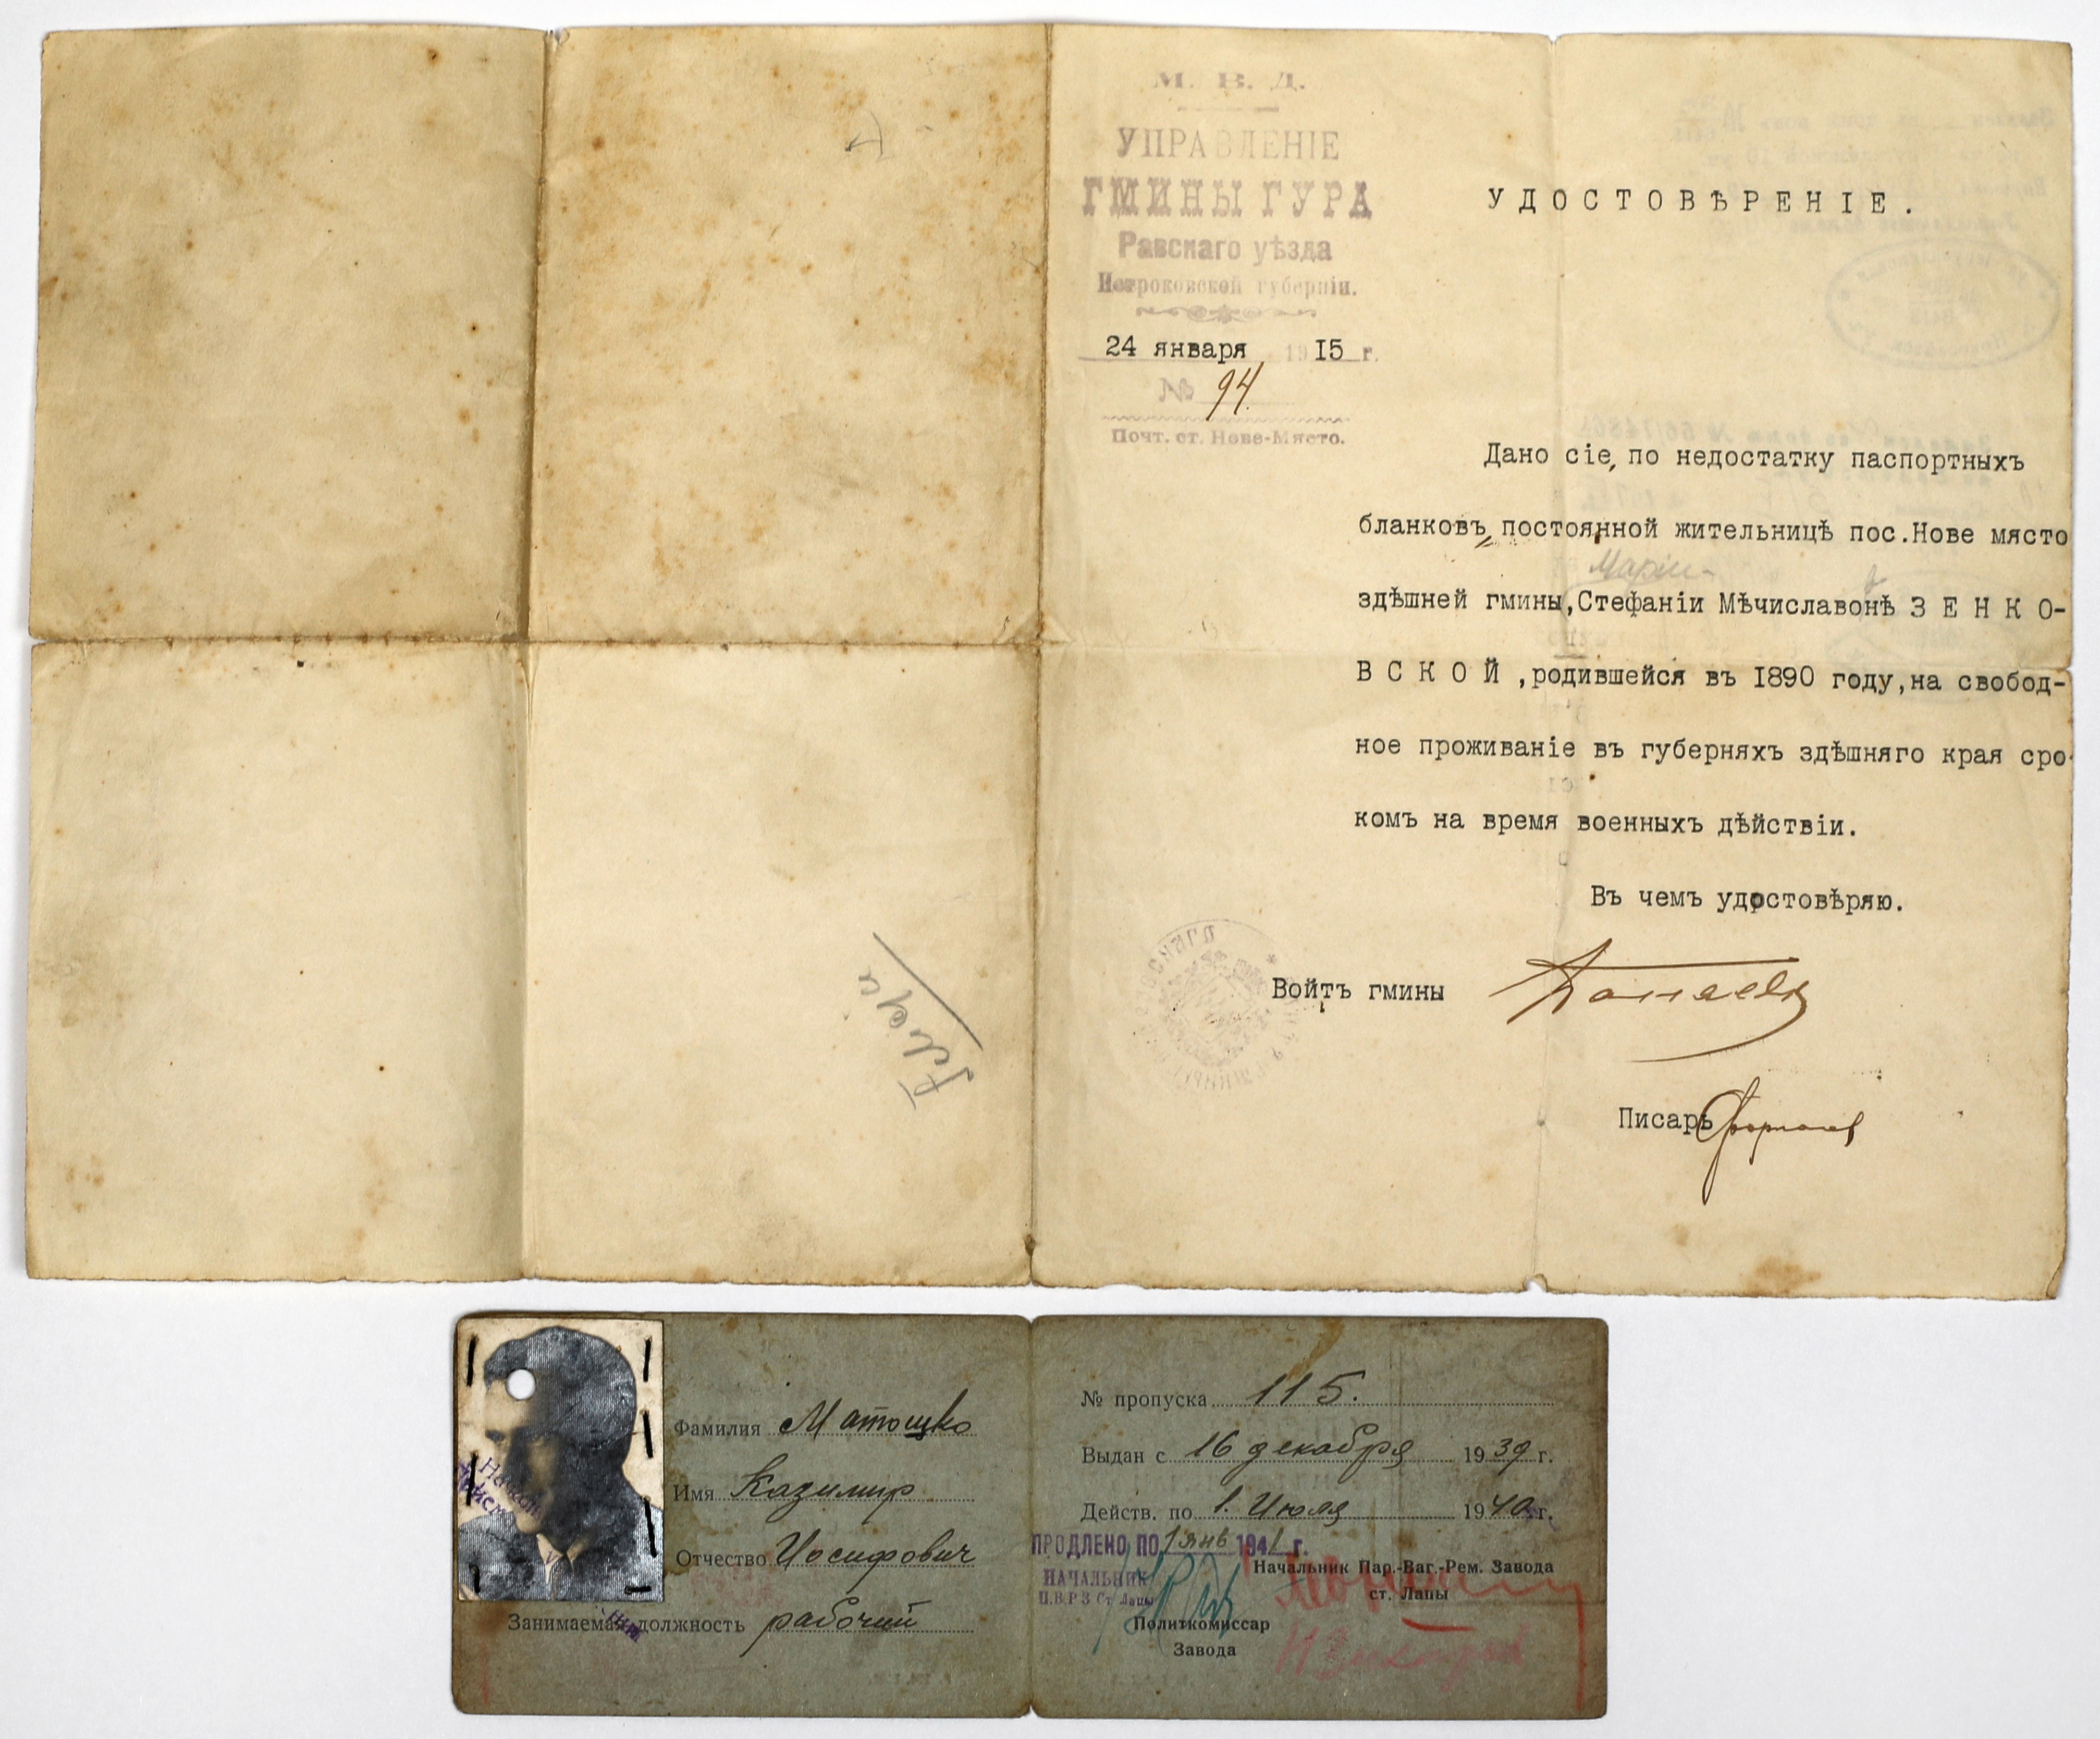 М. В. Д.
УПРАВЛЕНІЕ
ГМИНЫ ГУРА
Равскаго уѣзда
Петроковской губерніи.
24 января 1915 г.
№ 94.
Почт. ст. Нове-Място.
УДОСТОВѢРЕНІЕ.
Дано сіе, по недостатку паспортныхъ
бланковъ, постоянной жительницѣ пос.Нове място
Маріи-
здѣшней гмины,Стефаніи Мѣчиславонѣ ЗЕНКО-
ВСКОЙ,родившейся въ 1890 году,на свобод-
ное проживаніе въ губерняхъ здѣшняго края сро-
комъ на время военныхъ дѣйствіи.
Въ чемъ удостовѣряю.
Войтъ гмины
Писарь
Фамилия Матошко
Имя Казимир
Отчество Иосифович
Занимаемая должность рабочий
№ пропуска 115.
Выдан с 16 декабря 1939 г.
Действ. по 1. Июля 1940 г.
ПРОДЛЕНО ПО 1 янв 1941 г.
НАЧАЛЬНИК
П.В.Р.З Ст. Лапы
Начальник Пар.-Ваг.-Рем. Завода
ст. Лапы
Политкомиссар
Завода